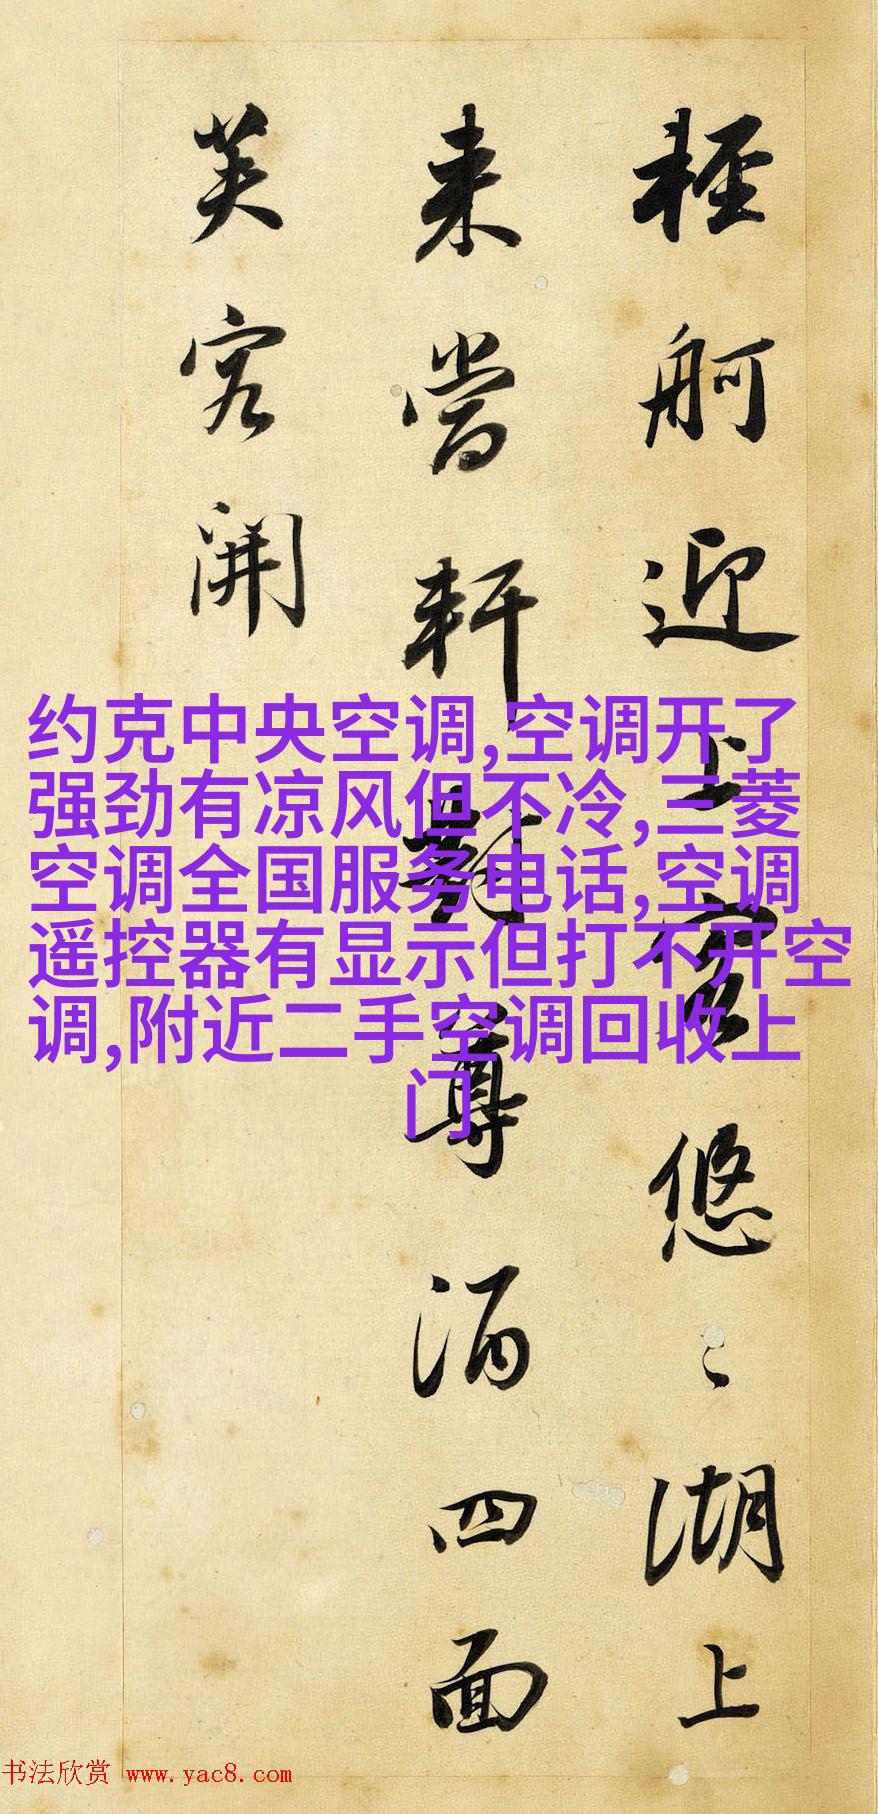 輕舸迎上客悠々湖上
来當軒對尊酒四面
芙容開
约克中央空调,空调开了
强劲有凉风但不冷,三菱
空调全国服务电话,空调
遥控器有显示但打不开空
调,附近二手空调回收上
门
书法欣赏 www.yac8.com